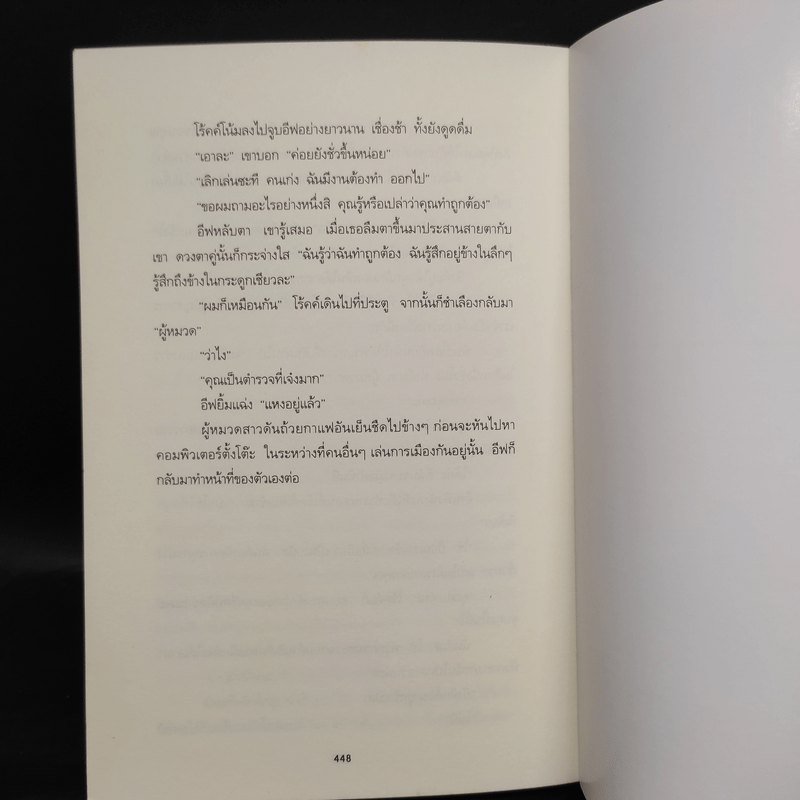 โร้คค์โน้มลงไปจูบอีฟอย่างยาวนาน เชื่องช้า ทั้งยังดูดดื่ม
"เอาละ" เขาบอก "ค่อยยังชั่วขึ้นหน่อย"
"เลิกเล่นซะที คนเก่ง ฉันมีงานต้องทำ ออกไป"
"ขอผมถามอะไรอย่างหนึ่งสิ คุณรู้หรือเปล่าว่าคุณทำถูกต้อง"
อีฟหลับตา เขารู้เสมอ เมื่อเธอลืมตาขึ้นมาประสานสายตากับ
เขา ดวงตาคู่นั้นก็กระจ่างใส "ฉันรู้ว่าฉันทำถูกต้อง ฉันรู้สึกอยู่ข้างในลึกๆ
รู้สึกถึงข้างในกระดูกเชียวละ"
"ผมก็เหมือนกัน" โร้คค์เดินไปที่ประตู จากนั้นก็ชำเลืองกลับมา
"ผู้หมวด"
"ว่าไง"
"คุณเป็นตำรวจที่เจ๋งมาก"
อีฟยิ้มแฉ่ง "แหงอยู่แล้ว"
ผู้หมวดสาวดันถ้วยกาแฟอันเย็นชืดไปข้างๆ ก่อนจะหันไปหา
คอมพิวเตอร์ตั้งโต๊ะ ในระหว่างที่คนอื่นๆ เล่นการเมืองกันอยู่นั้น อีฟก็
กลับมาทำหน้าที่ของตัวเองต่อ
448